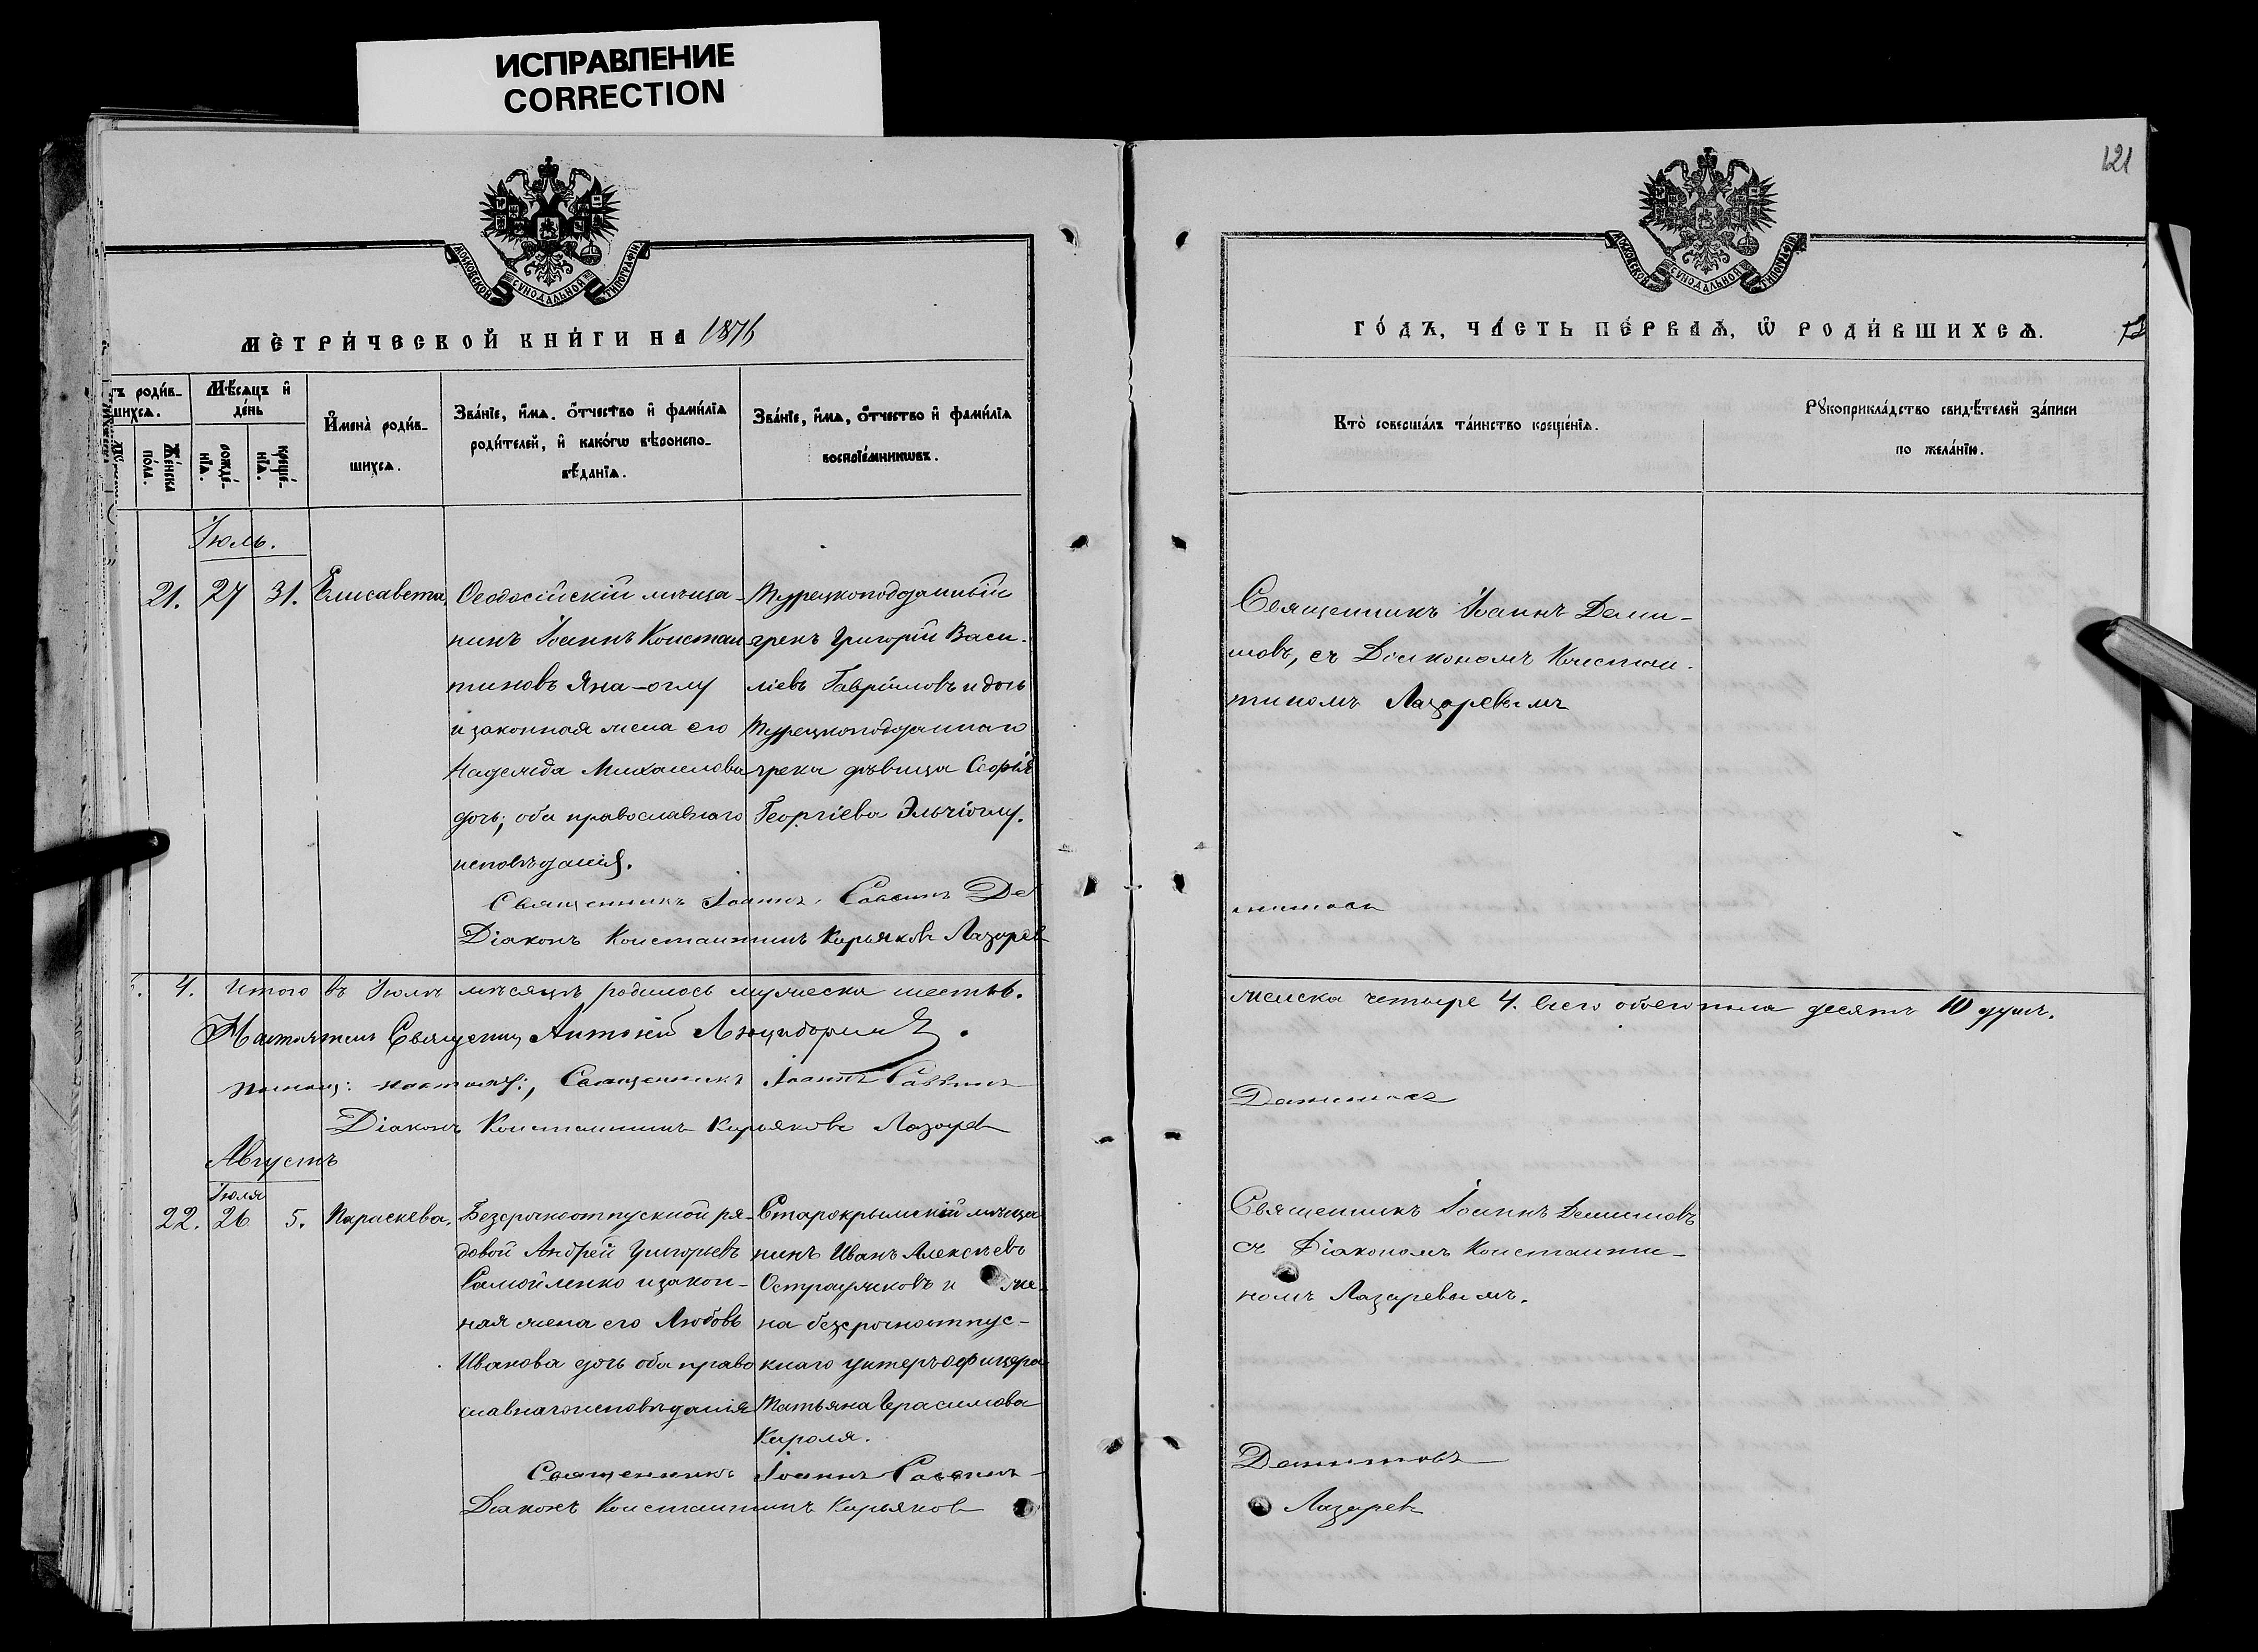 ИСПРАВЛЕНИЕ
CORRECTION
121
МОСКОВСКОЙ СѴНОДАЛЬНОЙ ТИПОГРАФІИ
МОСКОВСКОЙ СѴНОДАЛЬНОЙ ТИПОГРАФІИ
МЕТРИ́ЧЕСКОЙ КНИ́ГИ НА 1876
ГО́ДЪ, ЧА́СТЬ ПЕ́РВАѦ, Ѽ РОДИ́ВШИХСѦ.
тъ роди́в-
шихсѧ.
Же́нска
по́ла.
Мѣ́сѧцъ и҆
де́нь
рожде́-
нїѧ.
креще́-
нїѧ.
И҆мена̀ роди́в-
шихсѧ.
Зва́нїе, и҆́мѧ, ѻ҆́тчество и҆ фами́лїѧ
роди́телей, и҆ како́гѡ вѣроиспо-
вѣ́данїѧ.
Зва́нїе, и҆́мѧ, ѻ҆́тчество и҆ фами́лїѧ
воспрїе́мникѡвъ.
Кто̀ соверша́лъ та́инство креще́нїѧ.
Рꙋкоприкла́дство свидѣ́телей за́писи
по жела́нїю.
Іюль.
21. 27 31. Елисавета,
Ѳеодосійскій мѣща-
нинъ Іоаннъ Констан
тиновъ Яна-оглу
и законная жена его
Надежда Михаилова
дочь; оба православнаго
исповѣданія.
Турецкоподданный
грекъ Григорій Васи-
ліевъ Гавріиловъ и дочь
Турецкоподданнаго
грека дѣвица Софія
Георгіева Эльчіоглу.
Священникъ Іоаннъ Дани-
ловъ, съ Діакономъ Констан-
тиномъ Лазаревымъ
Священникъ Іоаннъ Саввинъ Да
ниловъ
Діаконъ Константинъ Кирьяковъ Лазаревъ
4. Итого въ Іюлѣ мѣсяцѣ родилось мужеска шесть.
женска четыре 4. всего обоего пола десять 10 душъ.
Настоятель Священникъ Антоній
помощ: настоят:, Священникъ Іоаннъ Саввинъ
Даниловъ
Діаконъ Константинъ Кирьяковъ Лазаревъ
Августъ
Іюля
22. 26 5. Параскева,
Безсрочноотпускной ря-
довой Андрей Григорьевъ
Самойленко и закон-
ная жена его Любовь
Иванова дочь оба право
славнаго исповѣданія
Старокрымскій мѣща
нинъ Иванъ Алексѣевъ
и же-
на безсрочноотпус-
кнаго унтеръ офицера
Татьяна Герасимова
Кароля.
Священникъ Іоаннъ Даниловъ
съ Діакономъ Константи-
номъ Лазаревымъ.
Священникъ Іоаннъ Саввинъ
Даниловъ
Діаконъ Константинъ Кирьяковъ
Лазаревъ